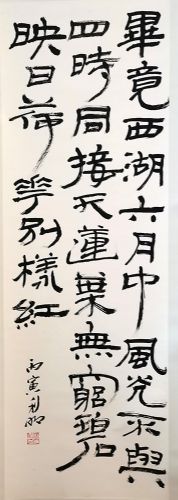 畢竟西湖六月中風光不與
四時同接天蓮葉無窮碧
映日荷華別樣紅
丙寅